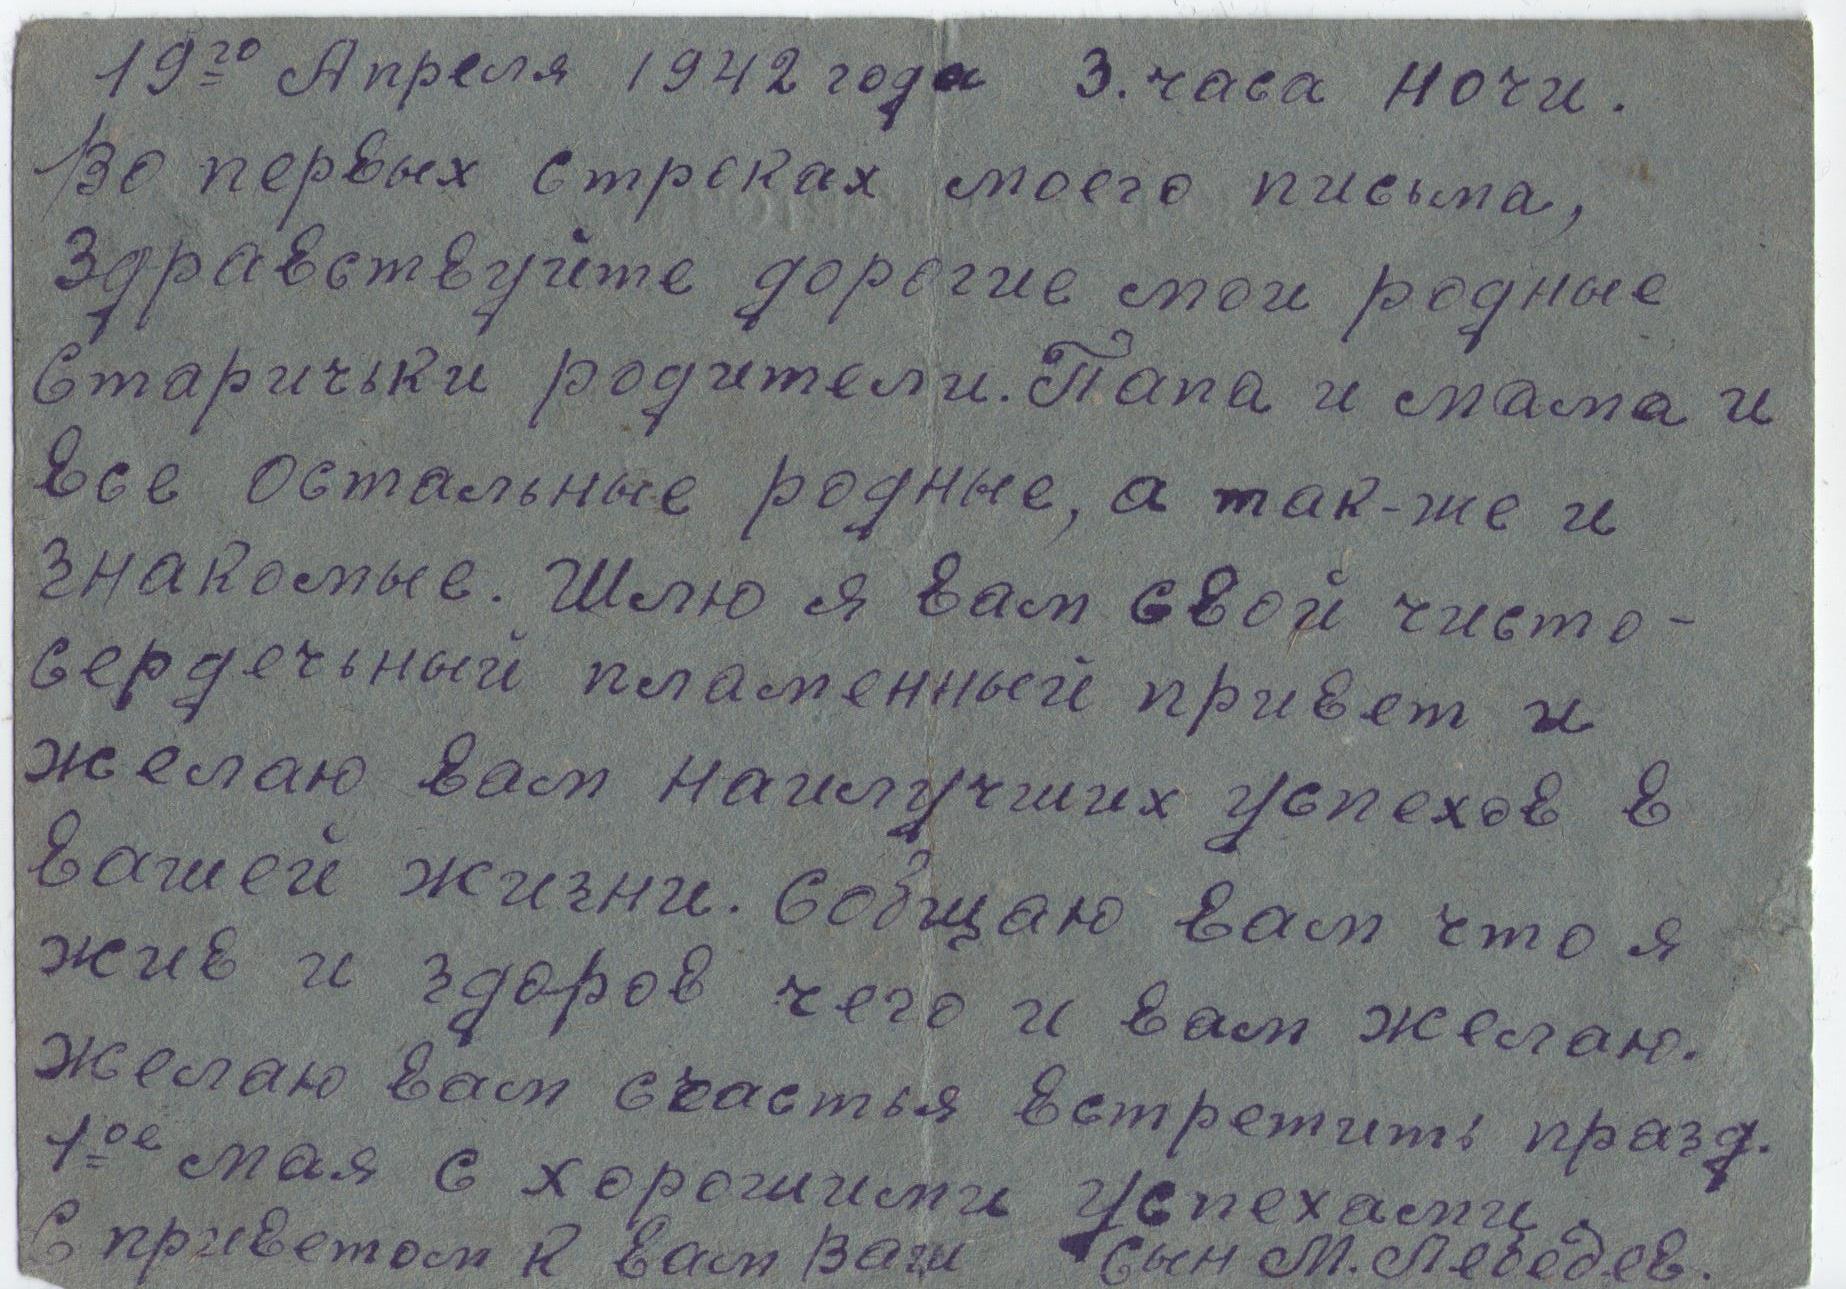 19го Апреля 1942 года 3. часа ночи.
Во первых строках моего письма,
Здравствуйте дорогие мои родные
Старичьки родители. Папа и мама и
все остальные родные, а так-же и
знакомые. Шлю я вам свой чисто-
сердечьный пламенный привет и
желаю вам наилучших успехов в
вашей жизни. Собщаю вам что я
жив и здоров чего и вам желаю.
Желаю вам счастья встретить празд.
1ое мая с хорошими успехами.
С приветом к вам Ваш Сын М. Лебедев.